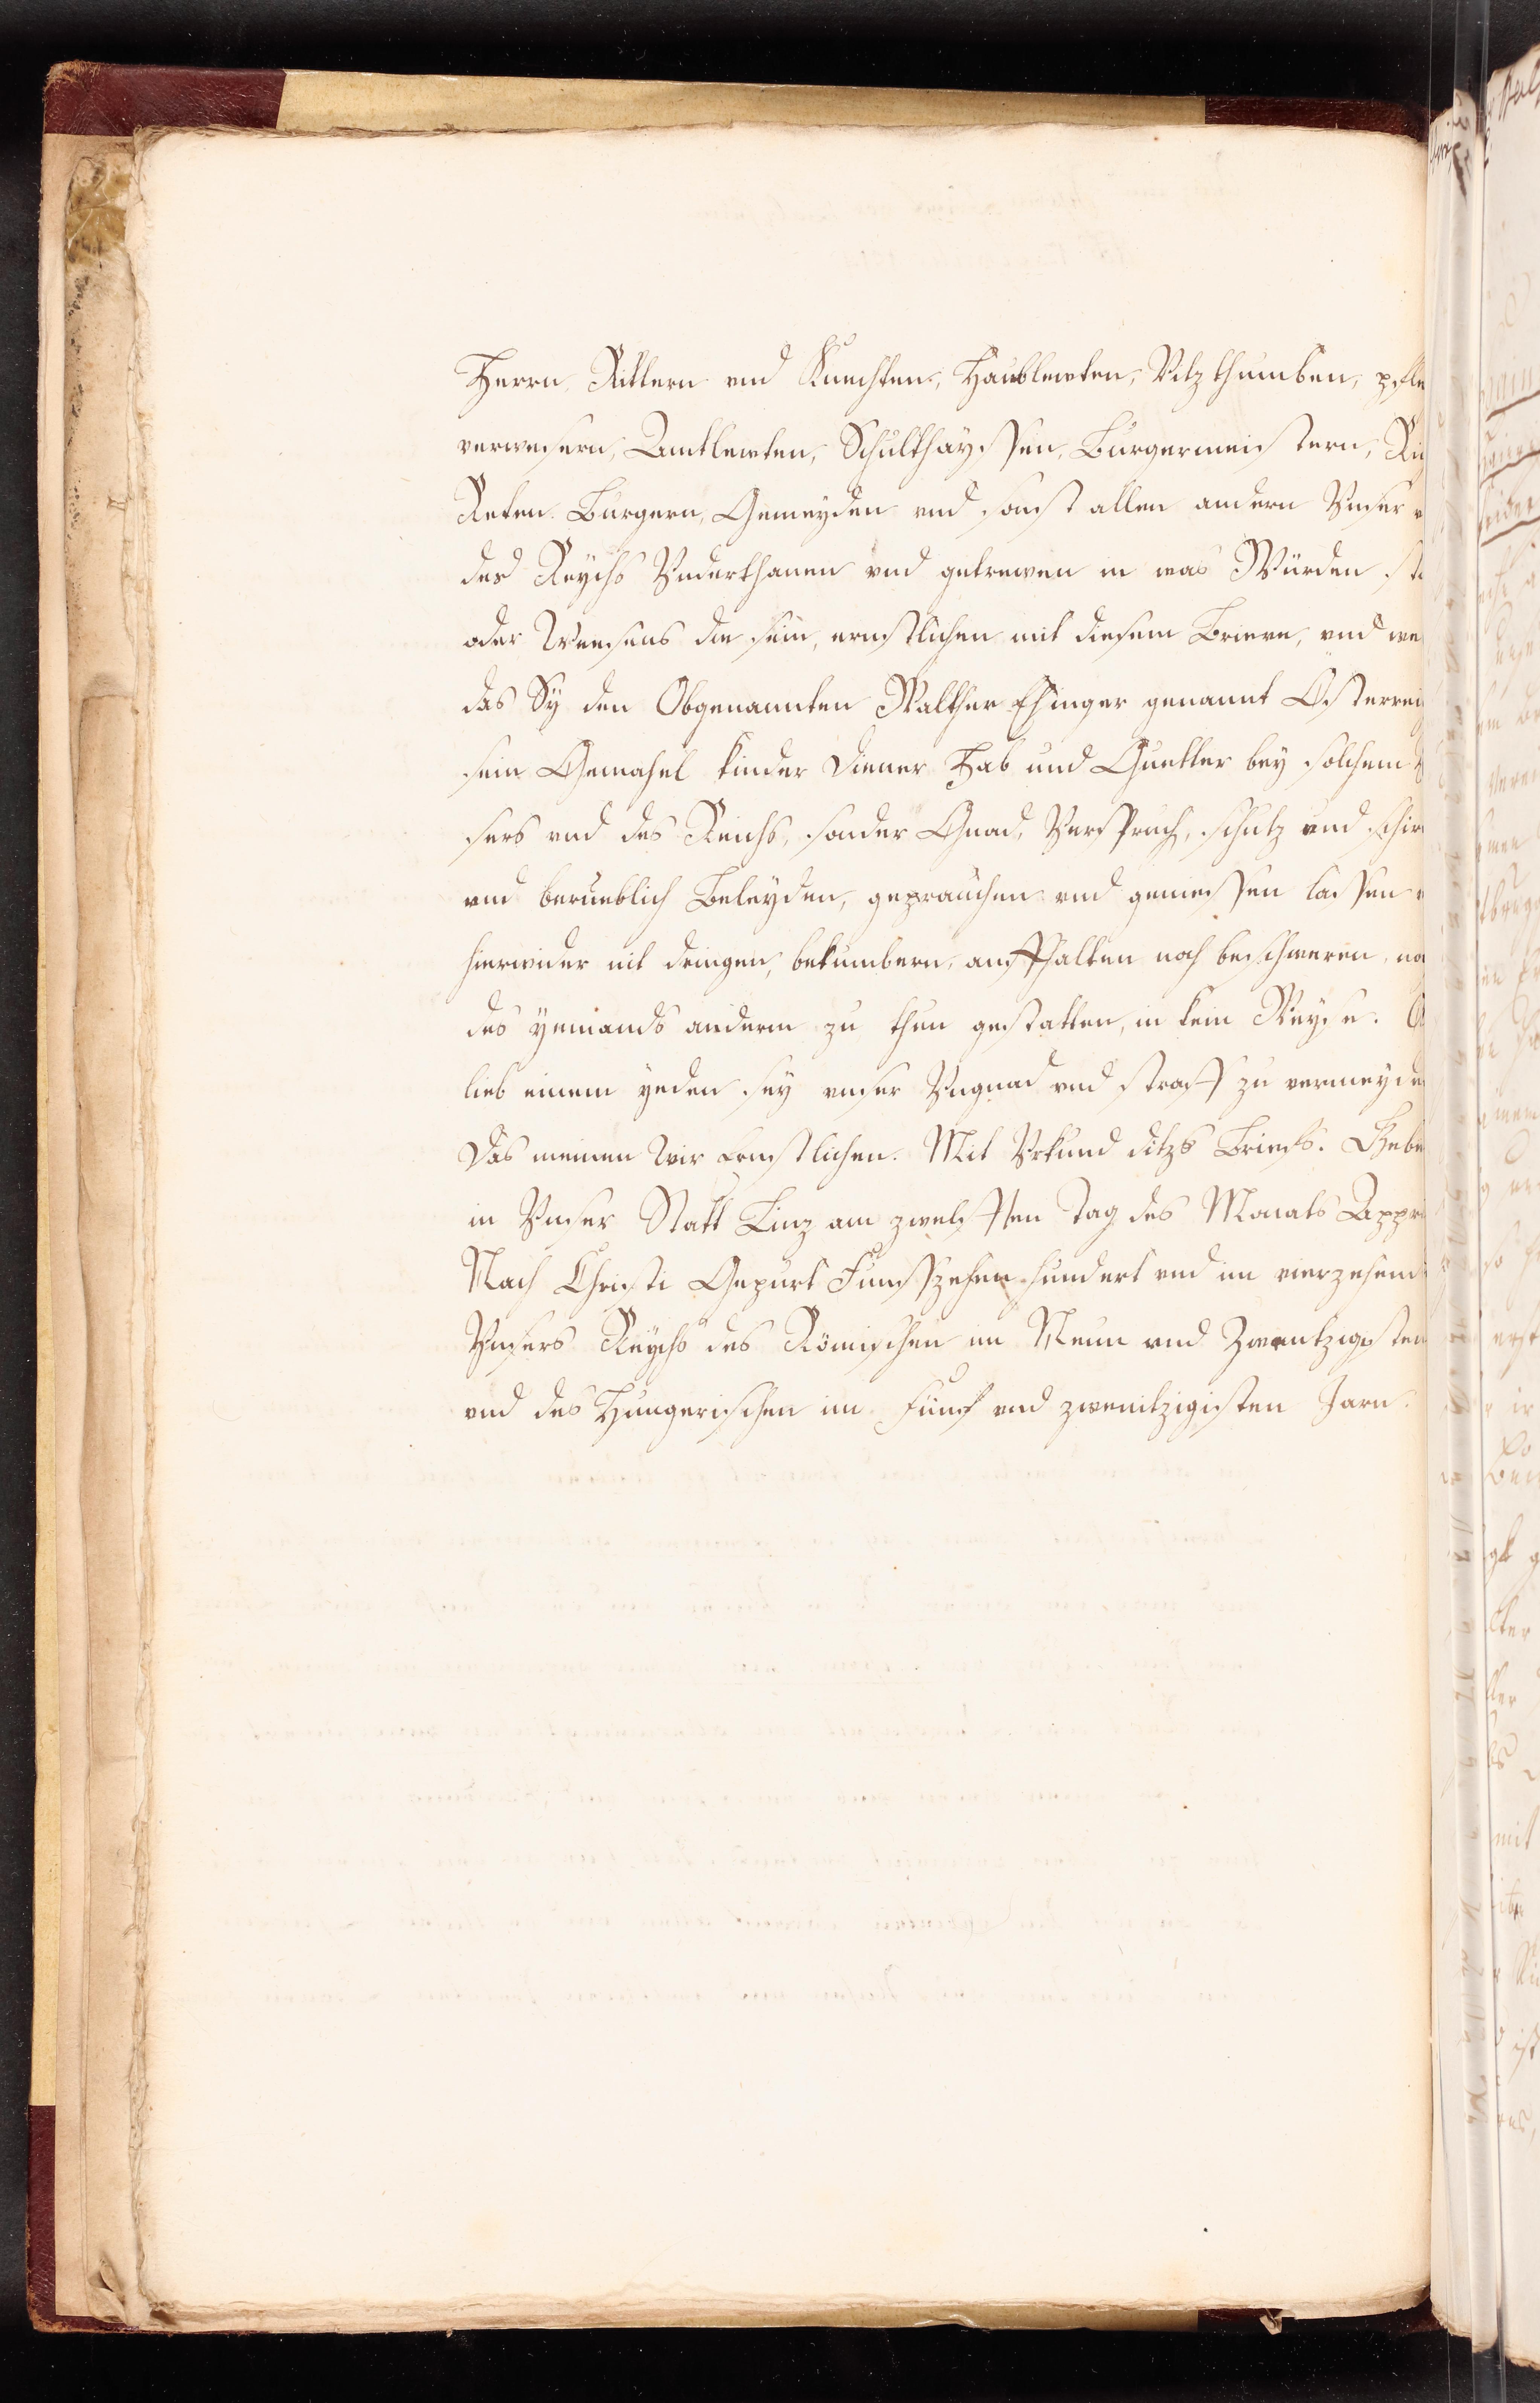 Herrn Rittern vnd Knechten, Haubtlewten, Vitzthumben, pfle
verwesern, Ambtlewten, Schulthayssen, Burgermeistern, Ric
Reten Burgern, Gemeyden vnd sonst allen andern Vnser v
des Reychs Vnderthanen vnd getrewen in was Würden st
oder Weesens die sein, ernstlichen mit diesem Brieve, vnd we
das Sy den Obgenannten Walther Ehinger genannt Osterreic
sein Gemahel kinder Diener Hab und Guetter bey solchem
sers vnd des Reichs, sonder Gnad, Verspruch, schutz vnd schir
vnd berueblich Beleyden, geprauchen vnd geniessen lassen v
hierwider nit dringen, bekumbern, auffhalten noch beschweren, no
des yemands anderm zu thun gestatten, in kein Weyse.
lieb einem yeden sey vnser Vngnad vnd straff zu vermeyde
Das meinen Wir Ernstlichen. Mit Vrkund ditzs Briefs. Gebe
in Vnser Statt Linz am zwelfften Tag des Monats Appri
Nach Christi Gepurt Funffzehenhundert vnd im vierzehend
Vnsers Reychs des Römischen im Neun vnd Zwentzigsten
vnd des Hungerischen im Fünf vnd zwenitzigisten Jarn.